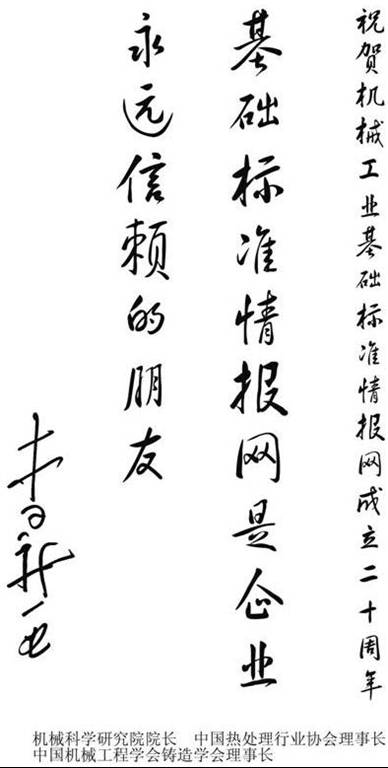 祝贺机械工业基础标准情报网成立二十周年
基础标准情报网是企业
永远信赖的朋友
机械科学研究院院长 中国热处理行业协会理事长
中国机械工程学会铸造学会理事长